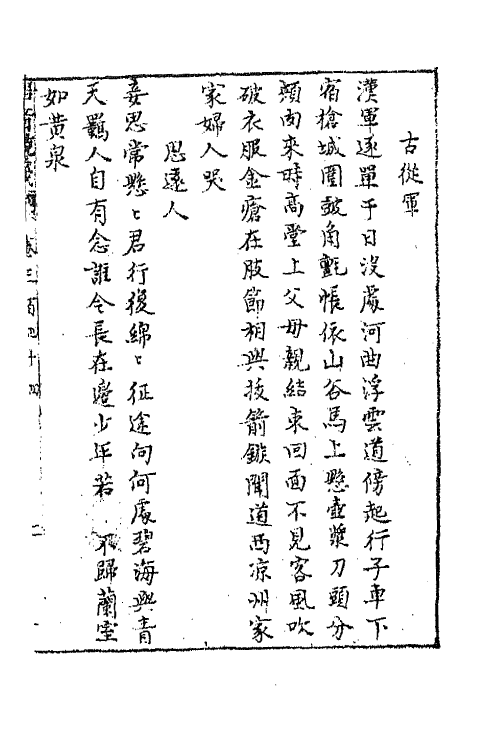 古從軍
漢軍逐單于日沒處河曲浮雲道傍起行子車下
宿槍城圍鼓角氈帳依山谷馬上懸壺漿刀頭分
頰肉來時高堂上父母親結束回面不見客風吹
破衣服金瘡在肢節相與拔箭鏃聞道西凉州家
家婦人哭
思遠人
妾思常懸〻君行復綿〻征途向何處碧海與青
天羈人自有念誰令長在邊少年若 不歸蘭室
如黃泉
卷三百四十四